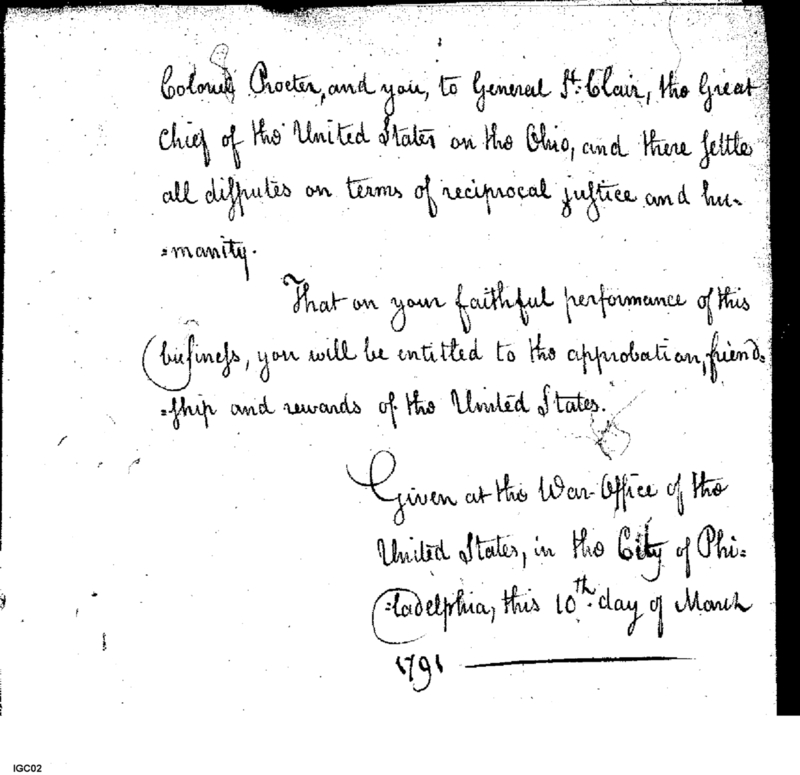 Colonel Procter, and you, to General St. Clair, the Great
Chief of the United States on the Ohio, and there settle
all disputes on terms of reciprocal justice and hu-
=manity.
That on your faithful performance of this
business, you will be entitled to the approbation, friend=
=ship and rewards of the United States.
Given at the War-Office of the
United States, in the City of Phi=
=ladelphia, this 10th. day of March
1791
IGC02